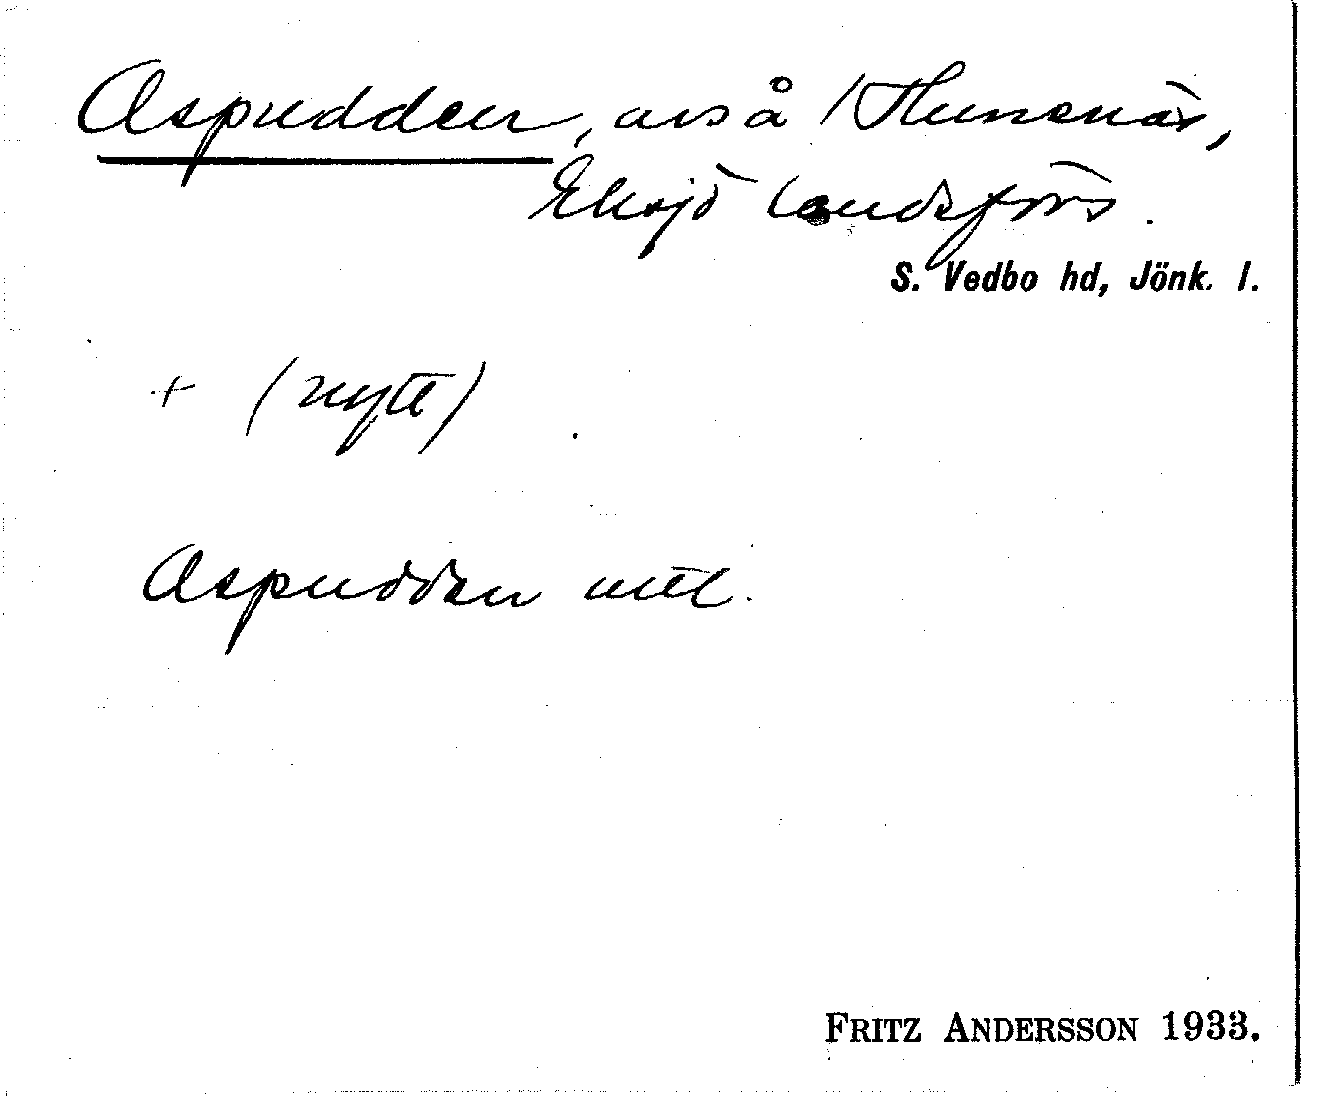 Aspudden, avs å 1 Hunsnäs,
Eksjö landsförs.
S. Vedbo hd, Jönk. l.
+ (nytt)
Aspudden mtl.
FRITZ ANDERSSON 1933.